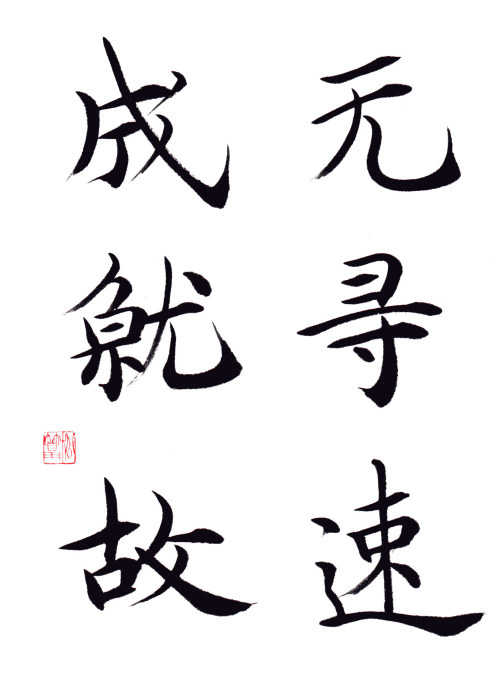 无寻速
成就故